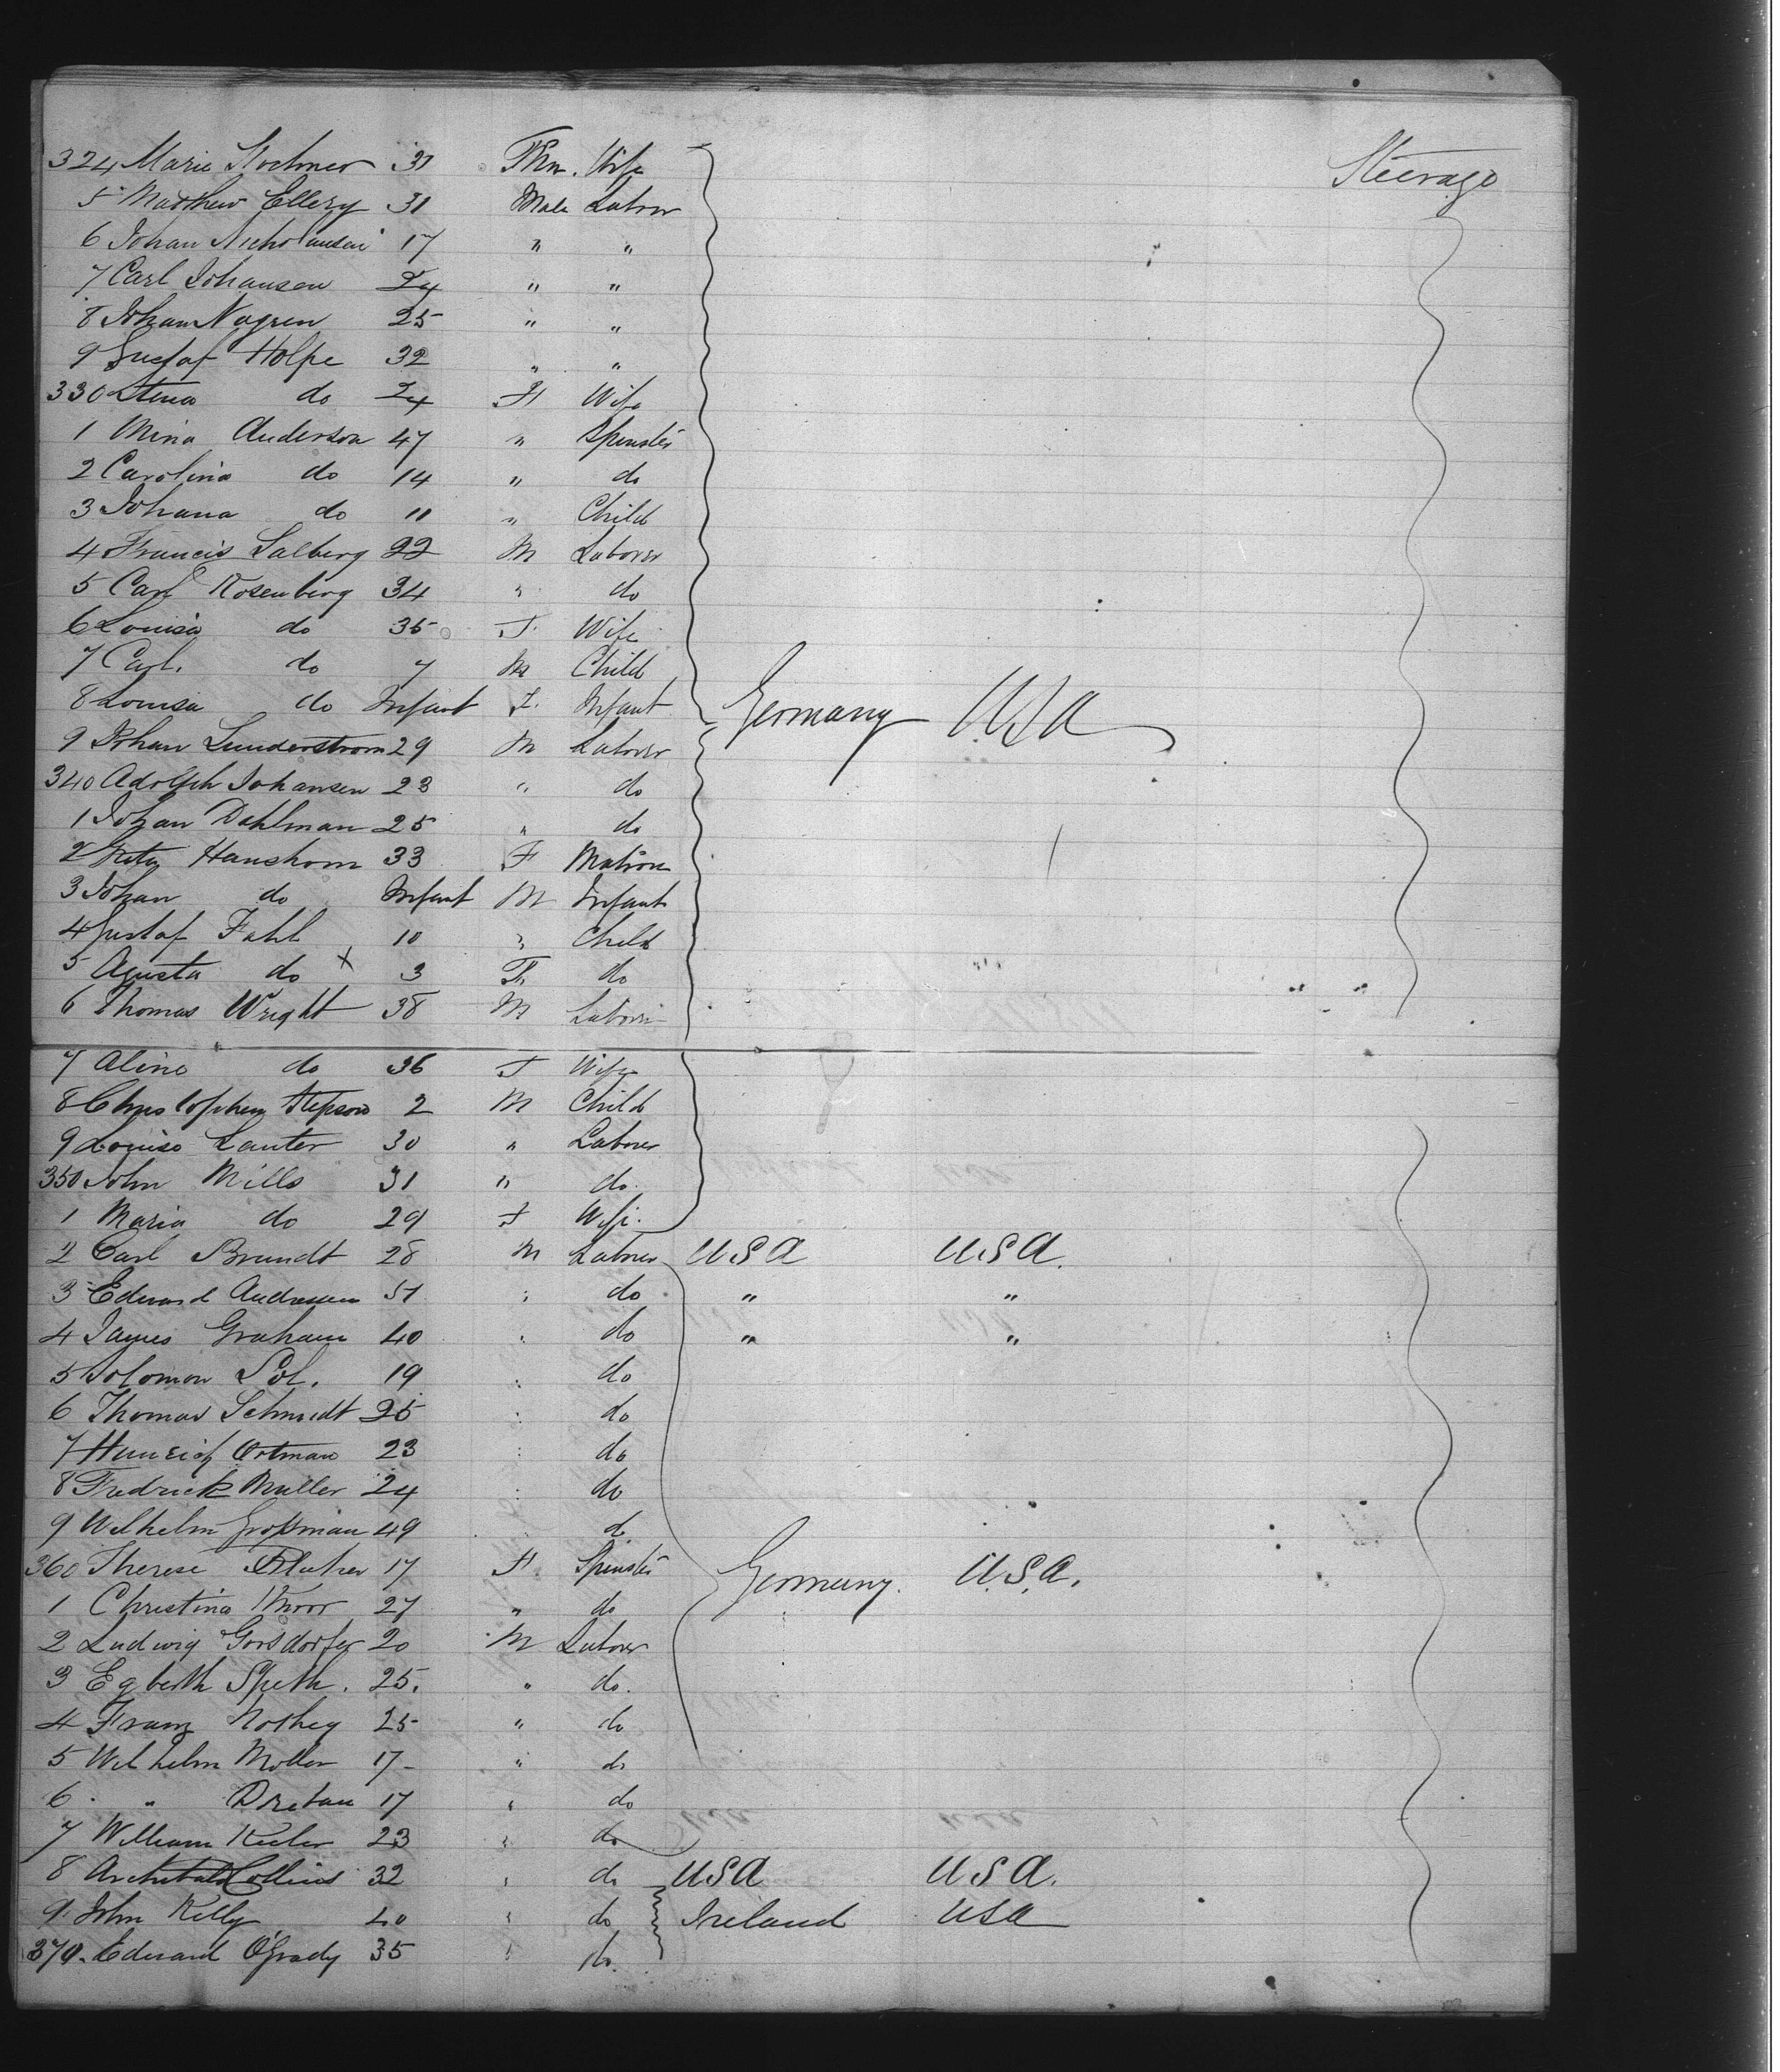 324 Marie 31 Fm. Wife Steerage
5 Matthew Ellery 31 Male Labrer
6 Johan 17 " "
7 Carl Johansen 24 " "
8 Johan Nygren 25 " "
9 Gustaf Holpe 32 " "
330 Stina do 24 F Wife
1 Mina Anderson 47 " Spinster
2 Carolina do 14 " do
3 Johana do 11 " Child
4 Francis Salberg 22 M Laborer
5 Carl Rosenberg 34 " do
6 Louisa do 35 F. Wife
7 Carl. do 7 M Child
8 Louisa do Infant F. Infant Germany USA
9 Johan Lunderstrom 29 M Laborer
340 Adolph Johansen 23 " do
1 Johan Dahlman 25 " do
2 Hanshom 33 F Matron
3 Johan do Infant M Infant
4 Gustaf Fahl 10 " Child
5 Agusta do x 3 Fm do
6 Thomas Wright 38 M Laborer
7 Aline do 36 F Wife
8 Christopher Stepson 2 M Child
9 Louise Lauter 30 " Laborer
350 John Mills 31 " do.
1 Maria do 29 F Wife.
2 Carl Brundt 28 M Laborer USA USA.
3 Edward Andresen 51 " do " "
4 James Graham 40 " do " "
5 Solomon Sol. 19 " do
6 Thomas Schmidt 25 " do
7 Heinrich Ortman 23 " do
8 Fredrick Muller 24 " do
9 Wilhelm Großman 49 " do
360 Therese 17 F Spinster Germany. U.S.A.
1 Christina Knorr 27 " do
2 Ludwig Gorsdorfer 20 M Laborer
3 Egberth Speth. 25. " do.
4 Franz Nothey 25 " do
5 Wilhelm Moller 17 " do
6 " 17 " do
7 William Keeler 23 " do
8 Archibald Collins 32 " do USA USA.
9. John Kelly 40 " do Ireland USA
370. Edward O'Grady 35 " do.